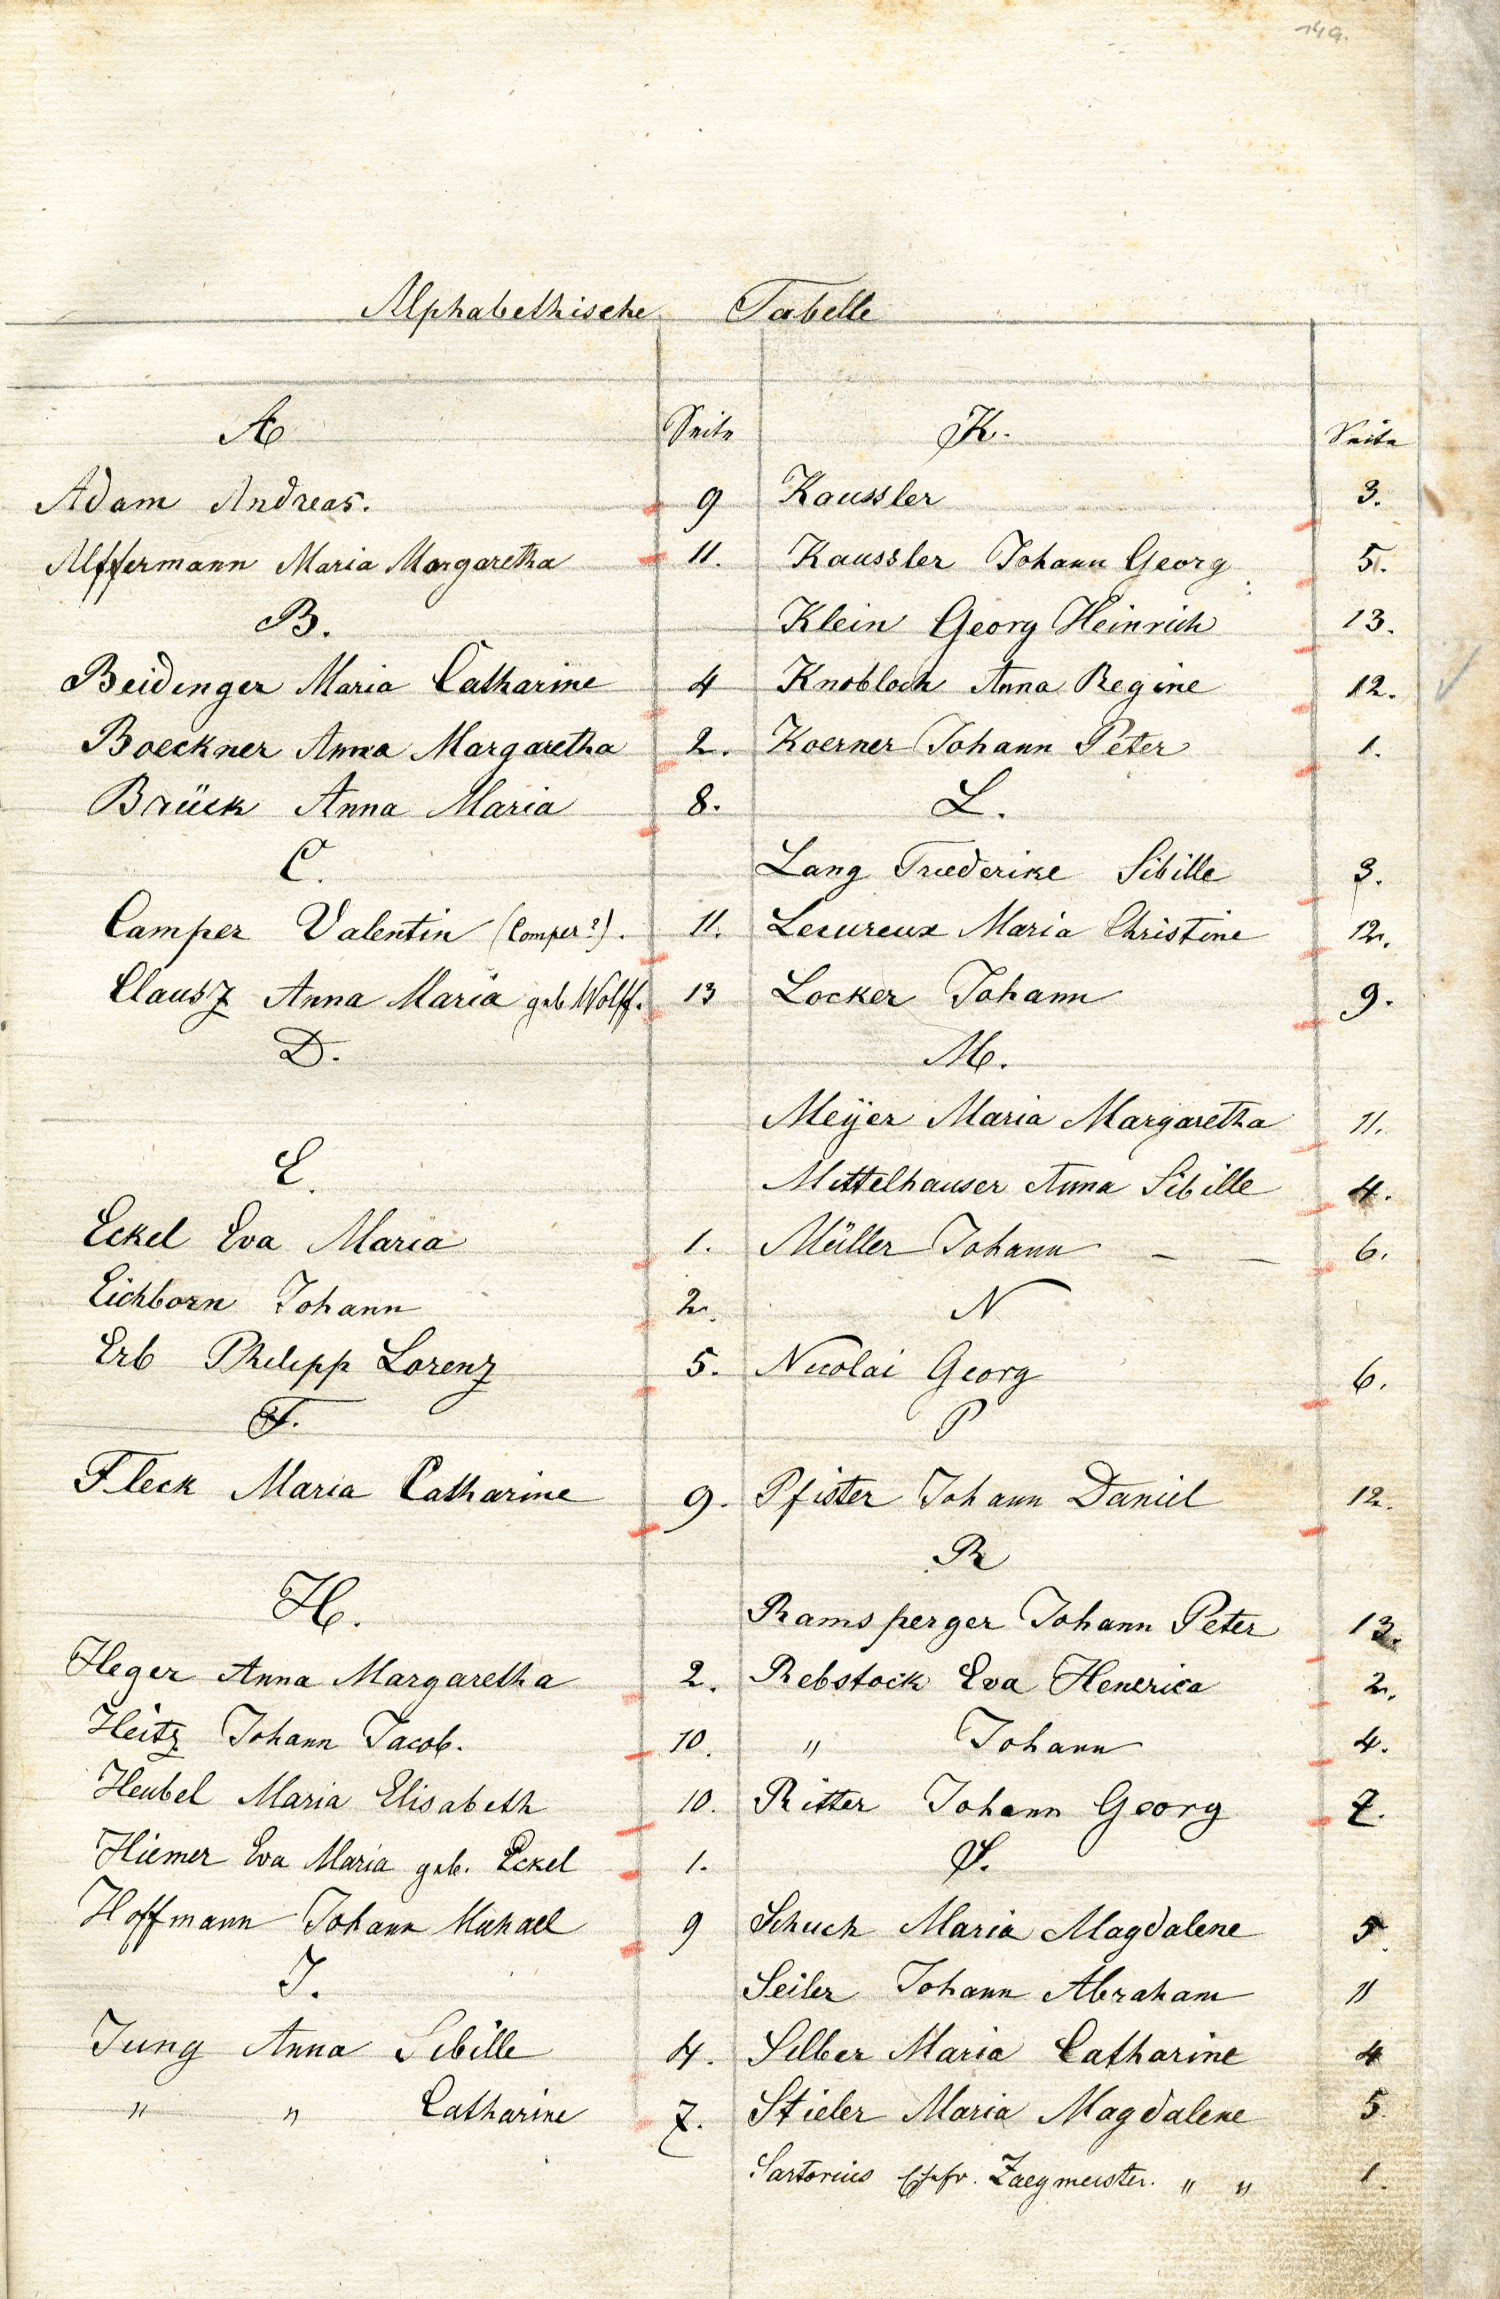 149.
Alphabethische Tabelle
A Seite
Adam Andreas. 9
Alffermann Maria Margaretha 11.
B.
Beidinger Maria Catharine 4
Boeckner Anna Margaretha 2.
Brück Anna Maria 8.
C.
Camper Valentin (Comper?). 11.
Clausz Anna Maria geb. Wolff. 13
D.
E.
Eckel Eva Maria 1.
Eichborn Johann 2.
Erb Philipp Lorenz 5.
F.
Fleck Maria Catharine 9.
H.
Heger Anna Margaretha 2.
Heitz Johann Jacob. 10.
Heubel Maria Elisabeth 10.
Hiemer Eva Maria geb. Eckel 1.
Hoffmann Johann Michael 9
J.
Jung Anna Sibille 4.
" " Catharine 7.
K. Seite
Kaussler 3.
Kaussler Johann Georg 5.
Klein Georg Heinrich 13.
Knobloch Anna Regine 12.
Koerner Johann Peter 1.
L.
Lang Friederike Sibille 3.
Lecureux Maria Christine 12.
Locker Johann 9.
M.
Meÿer Maria Margaretha 11.
Mittelhauser Anna Sibille 4.
Müller Johann — — 6.
N
Nicolai Georg 6.
P
Pfister Johann Daniel 12.
R
Ramsperger Johann Peter 13.
Rebstock Eva Henerica 2.
" Johann 4.
Ritter Johann Georg 7.
S.
Schuch Maria Magdalene 5.
Seiler Johann Abraham 11
Silber Maria Catharine 4
Stieler Maria Magdalene 5
Sartorius Ehefr. Zaegmeister. " " 1.